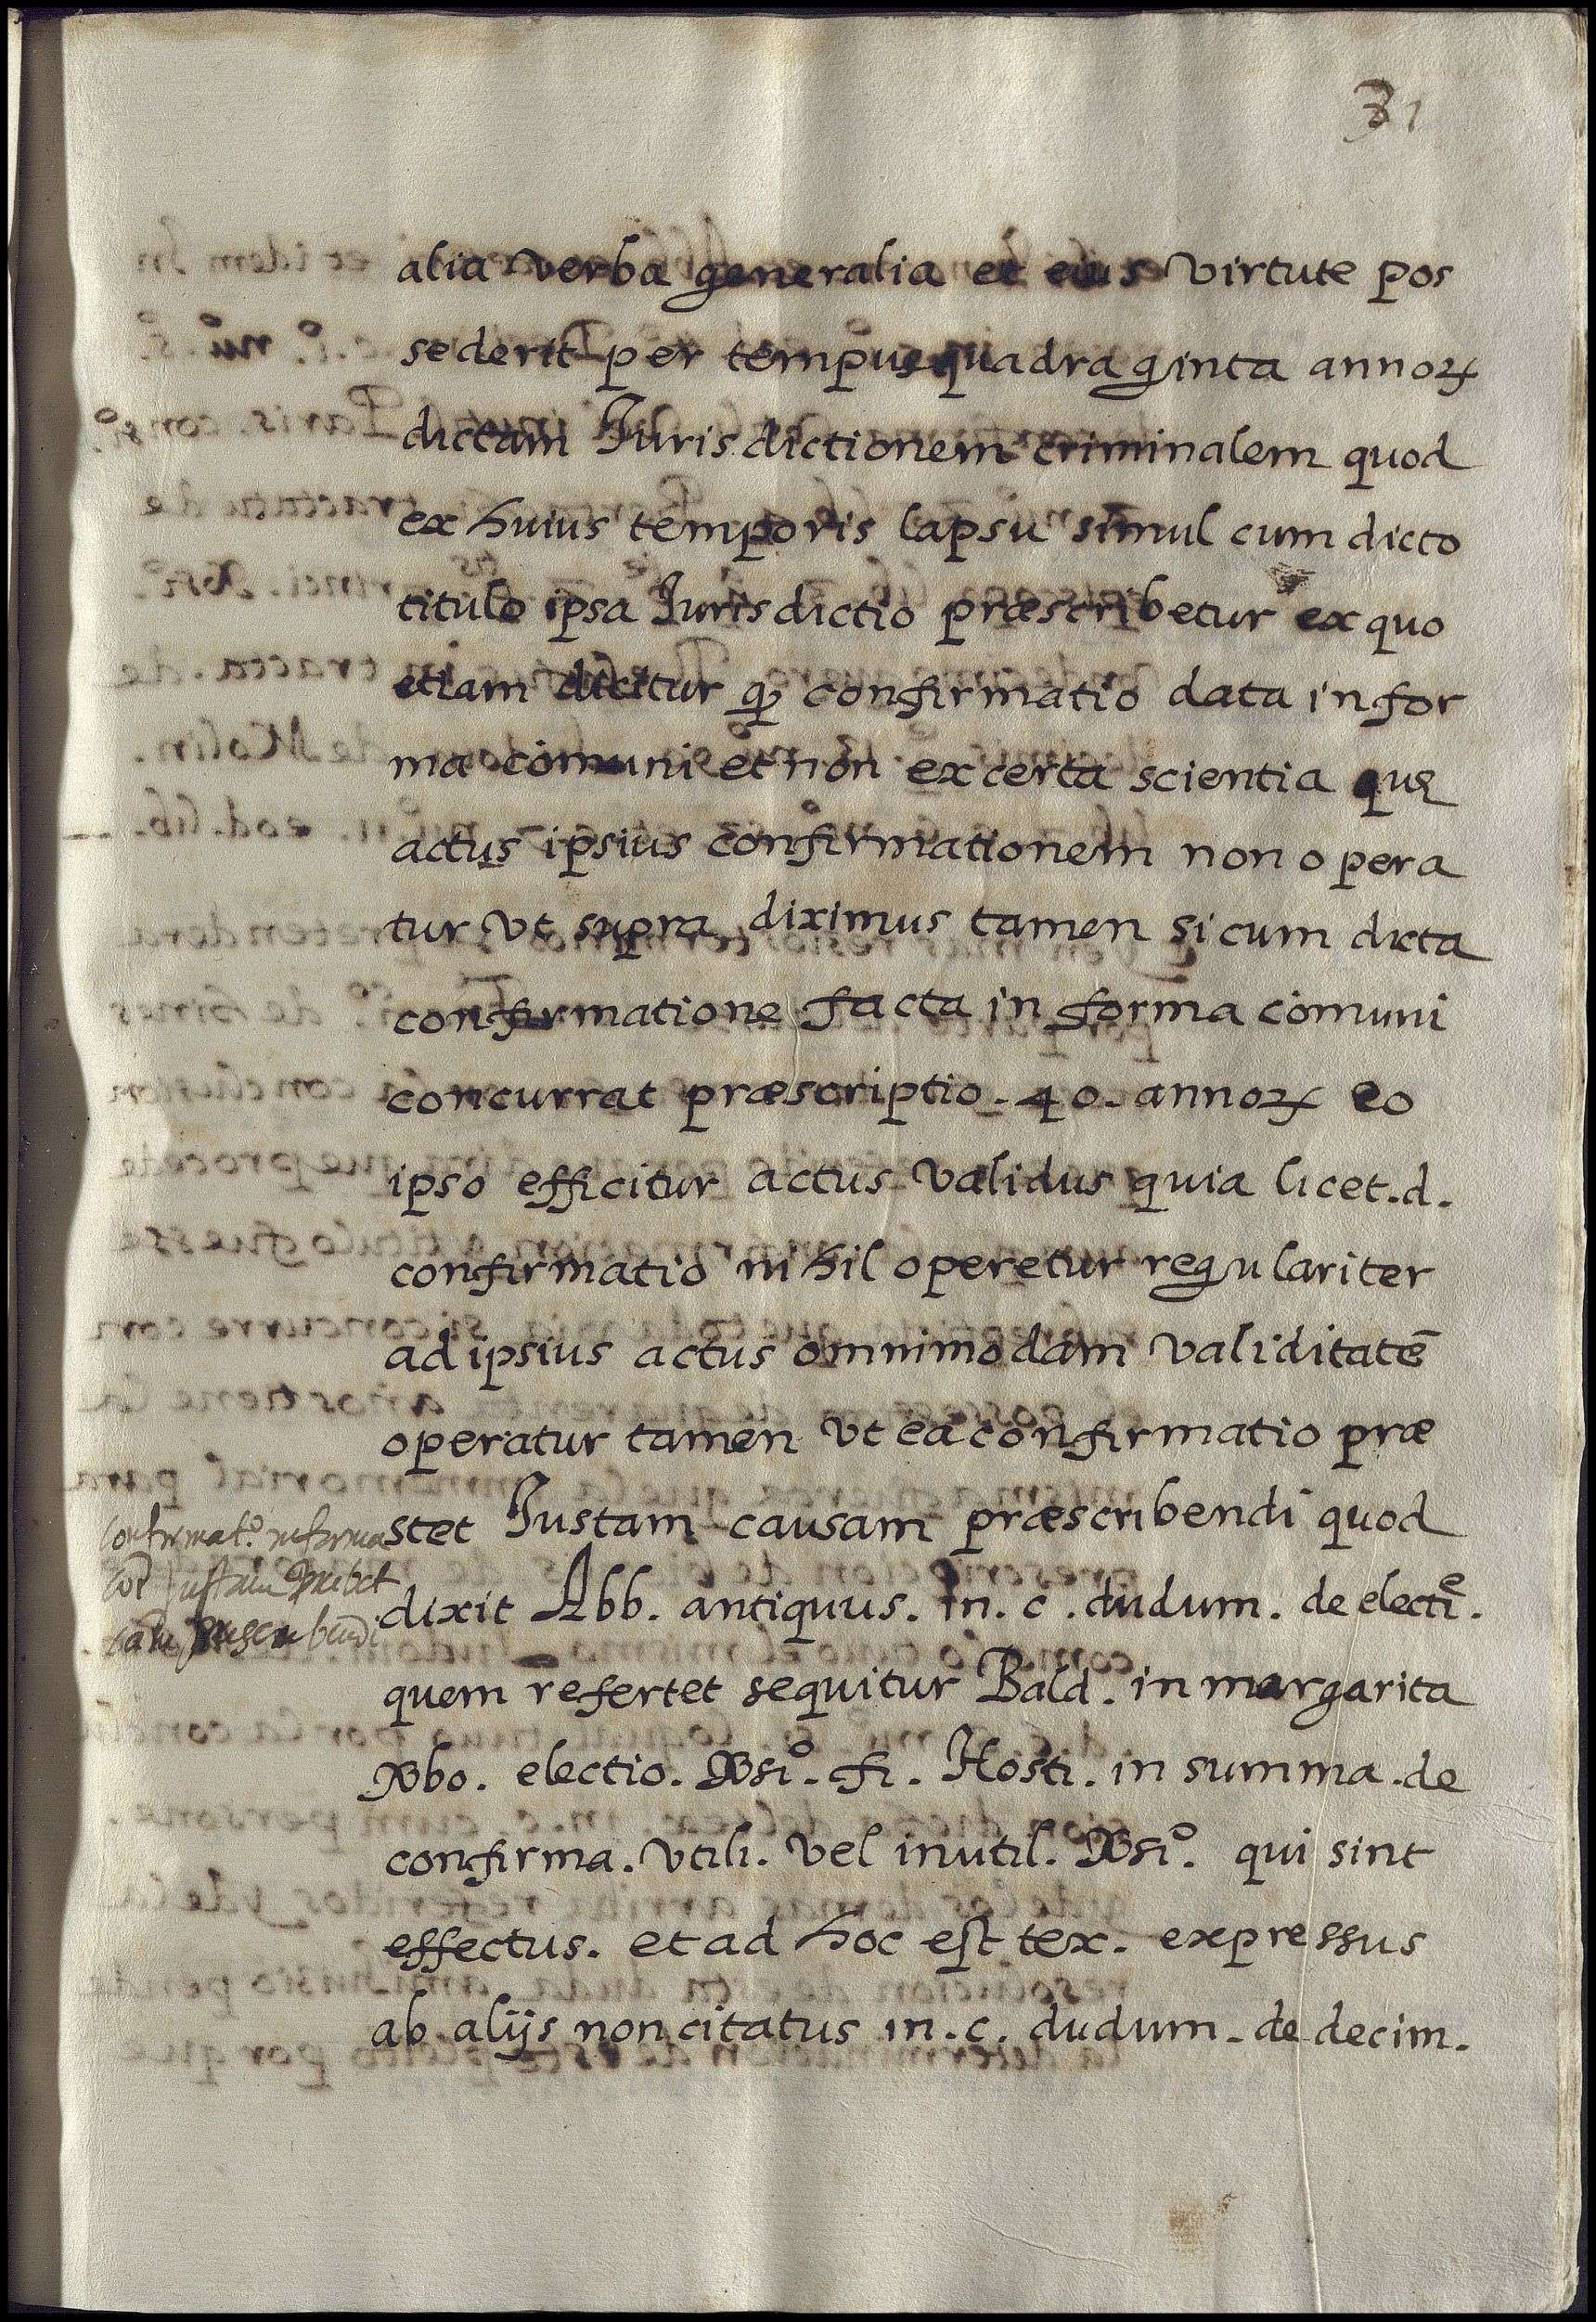 31
alia verba generalia et eius virtute pos
sederit per tempus quadraginta annoꝝ
dictam Jurisdictionem criminalem quod
ex huius temporis lapsu simul cum dicto
titulo ipsa Jurisdictio præscribetur ex quo
etiam dicitur ꝙ confirmatio data in for
ma cōmuni et non ex certa scientia quę
actus ipsius confirmationem non opera
tur vt supra diximus tamen si cum dicta
confirmatione facta in forma cōmuni
concurrat præscriptio .40. annoꝝ eo
ipso efficitur actus validus quia licet .d.
confirmatio nihil operetur regulariter
ad ipsius actus omnimodam validitatē
operatur tamen vt ea confirmatio præ
stet Justam causam præscribendi quod
dixit Abb. antiquus. in. c. dudum. de electe.
quem refert et sequitur Bald. in margarita
℣bo. electio. ℣siº. fi. Hosti. in summa. de
confirma. vtili. vel inutil. ℣siº. qui sint
effectus. et ad hoc est tex. expressus
ab alijs non citatus in. c. dudum. de decim.
confirmatº. in forma
coī justam præbet
cām præscribendi